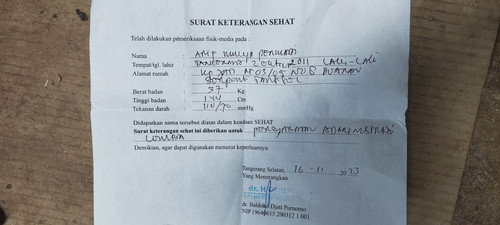 SURAT KETERANGAN SEHAT
Telah dilakukan pemeriksaan fisik-medis pada :
Nama :
Tempat/tgl. lahir : TANGERANG 2 2011 LAKI-LAKI
Alamat rumah : KP 03/05 NO 8 BUARAN
SERPONG TANGSEL
Berat badan : 37 Kg
Tinggi badan : 144 Cm
Tekanan darah : 110/70 mmHg
Didapatkan nama tersebut diatas dalam keadaan SEHAT
Surat keterangan sehat ini diberikan untuk : PERSYARATAN ADMINISTRASI
LOMBA
Demikian, agar dapat digunakan menurut keperluannya.
Tangerang Selatan, 16-11 2023
Yang Menerangkan
dr. H
dr. Haldoko Djati Purnomo
NIP 19640615 200312 1 001